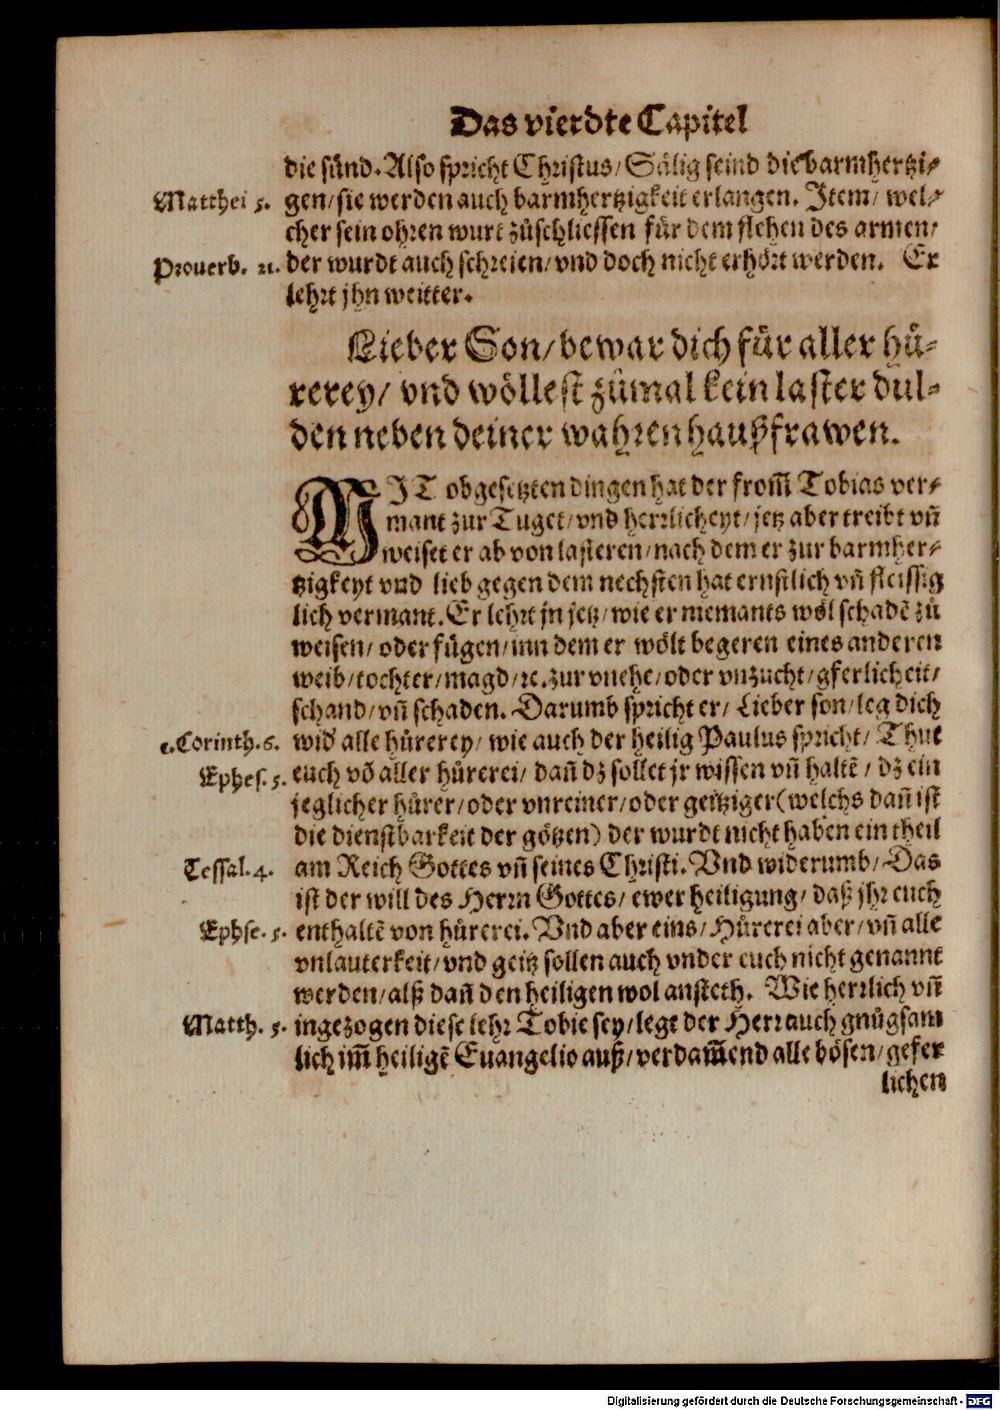 Das vierdte Capitel
die sünd. Also spricht Christus/ Sälig seind die barmhertzi⸗
Matthei 5. gen/ sie werden auch barmhertzigkeit erlangen. Item/ wel⸗
cher sein ohren wurt zůschliessen für dem flehen des armen/
Prouerb. 21. der wurdt auch schreien/ vnd doch nicht erhört werden. Er
lehrt jhn weitter.
Lieber Son/ bewar dich für aller hů⸗
rerey/ vnd wöllest zůmal kein laster dul⸗
den neben deiner wahren haußfrawen.
MIT obgesetzten dingen hat der from̃ Tobias ver⸗
mant zur Tuget/ vnd herrlicheyt/ jetz aber treibt vñ
weiset er ab von lasteren/ nach dem er zur barmher⸗
tzigkeyt vnd lieb gegen dem nechsten hat ernstlich vñ fleissig
lich vermant. Er lehrt jn jetz/ wie er niemants wöl schadẽ zů
weisen/ oder fügen/ inn dem er wölt begeren eines anderen
weib/ tochter/ magd/ ꝛc. zur vnehe/ oder vnzucht/ gferlicheit/
schand/ vñ schaden. Darumb spricht er/ Lieber son/ leg dich
1. Corinth. 6. wid' alle hůrerey/ wie auch der heilig Paulus spricht/ Thut
Ephes. 5. euch võ aller hůrerei/ dañ dz sollet jr wissen vñ haltẽ/ dz ein
jeglicher hůrer/ oder vnreiner/ oder geitziger (welchs dañ ist
die dienstbarkeit der götzen) der wurdt nicht haben ein theil
Tessal. 4. am Reich Gottes vñ seines Christi. Vnd widerumb/ Das
ist der will des Herrn Gottes/ ewer heiligung/ daß jhr euch
Ephse. 5. enthaltẽ von hůrerei. Vnd aber eins/ Hůrerei aber/ vñ alle
vnlauterkeit/ vnd geitz sollen auch vnder euch nicht genannt
werden/ alß dañ den heiligen wol ansteth. Wie herrlich vñ
Matth. 5. ingezogen diese lehr Tobie sey/ legt der Herr auch gnůgsam
lich im̃ heiligẽ Euangelio auß/ verdam̃end alle bösen/ gefer
lichen
Digitalisierung gefördert durch die Deutsche Forschungsgemeinschaft - DFG